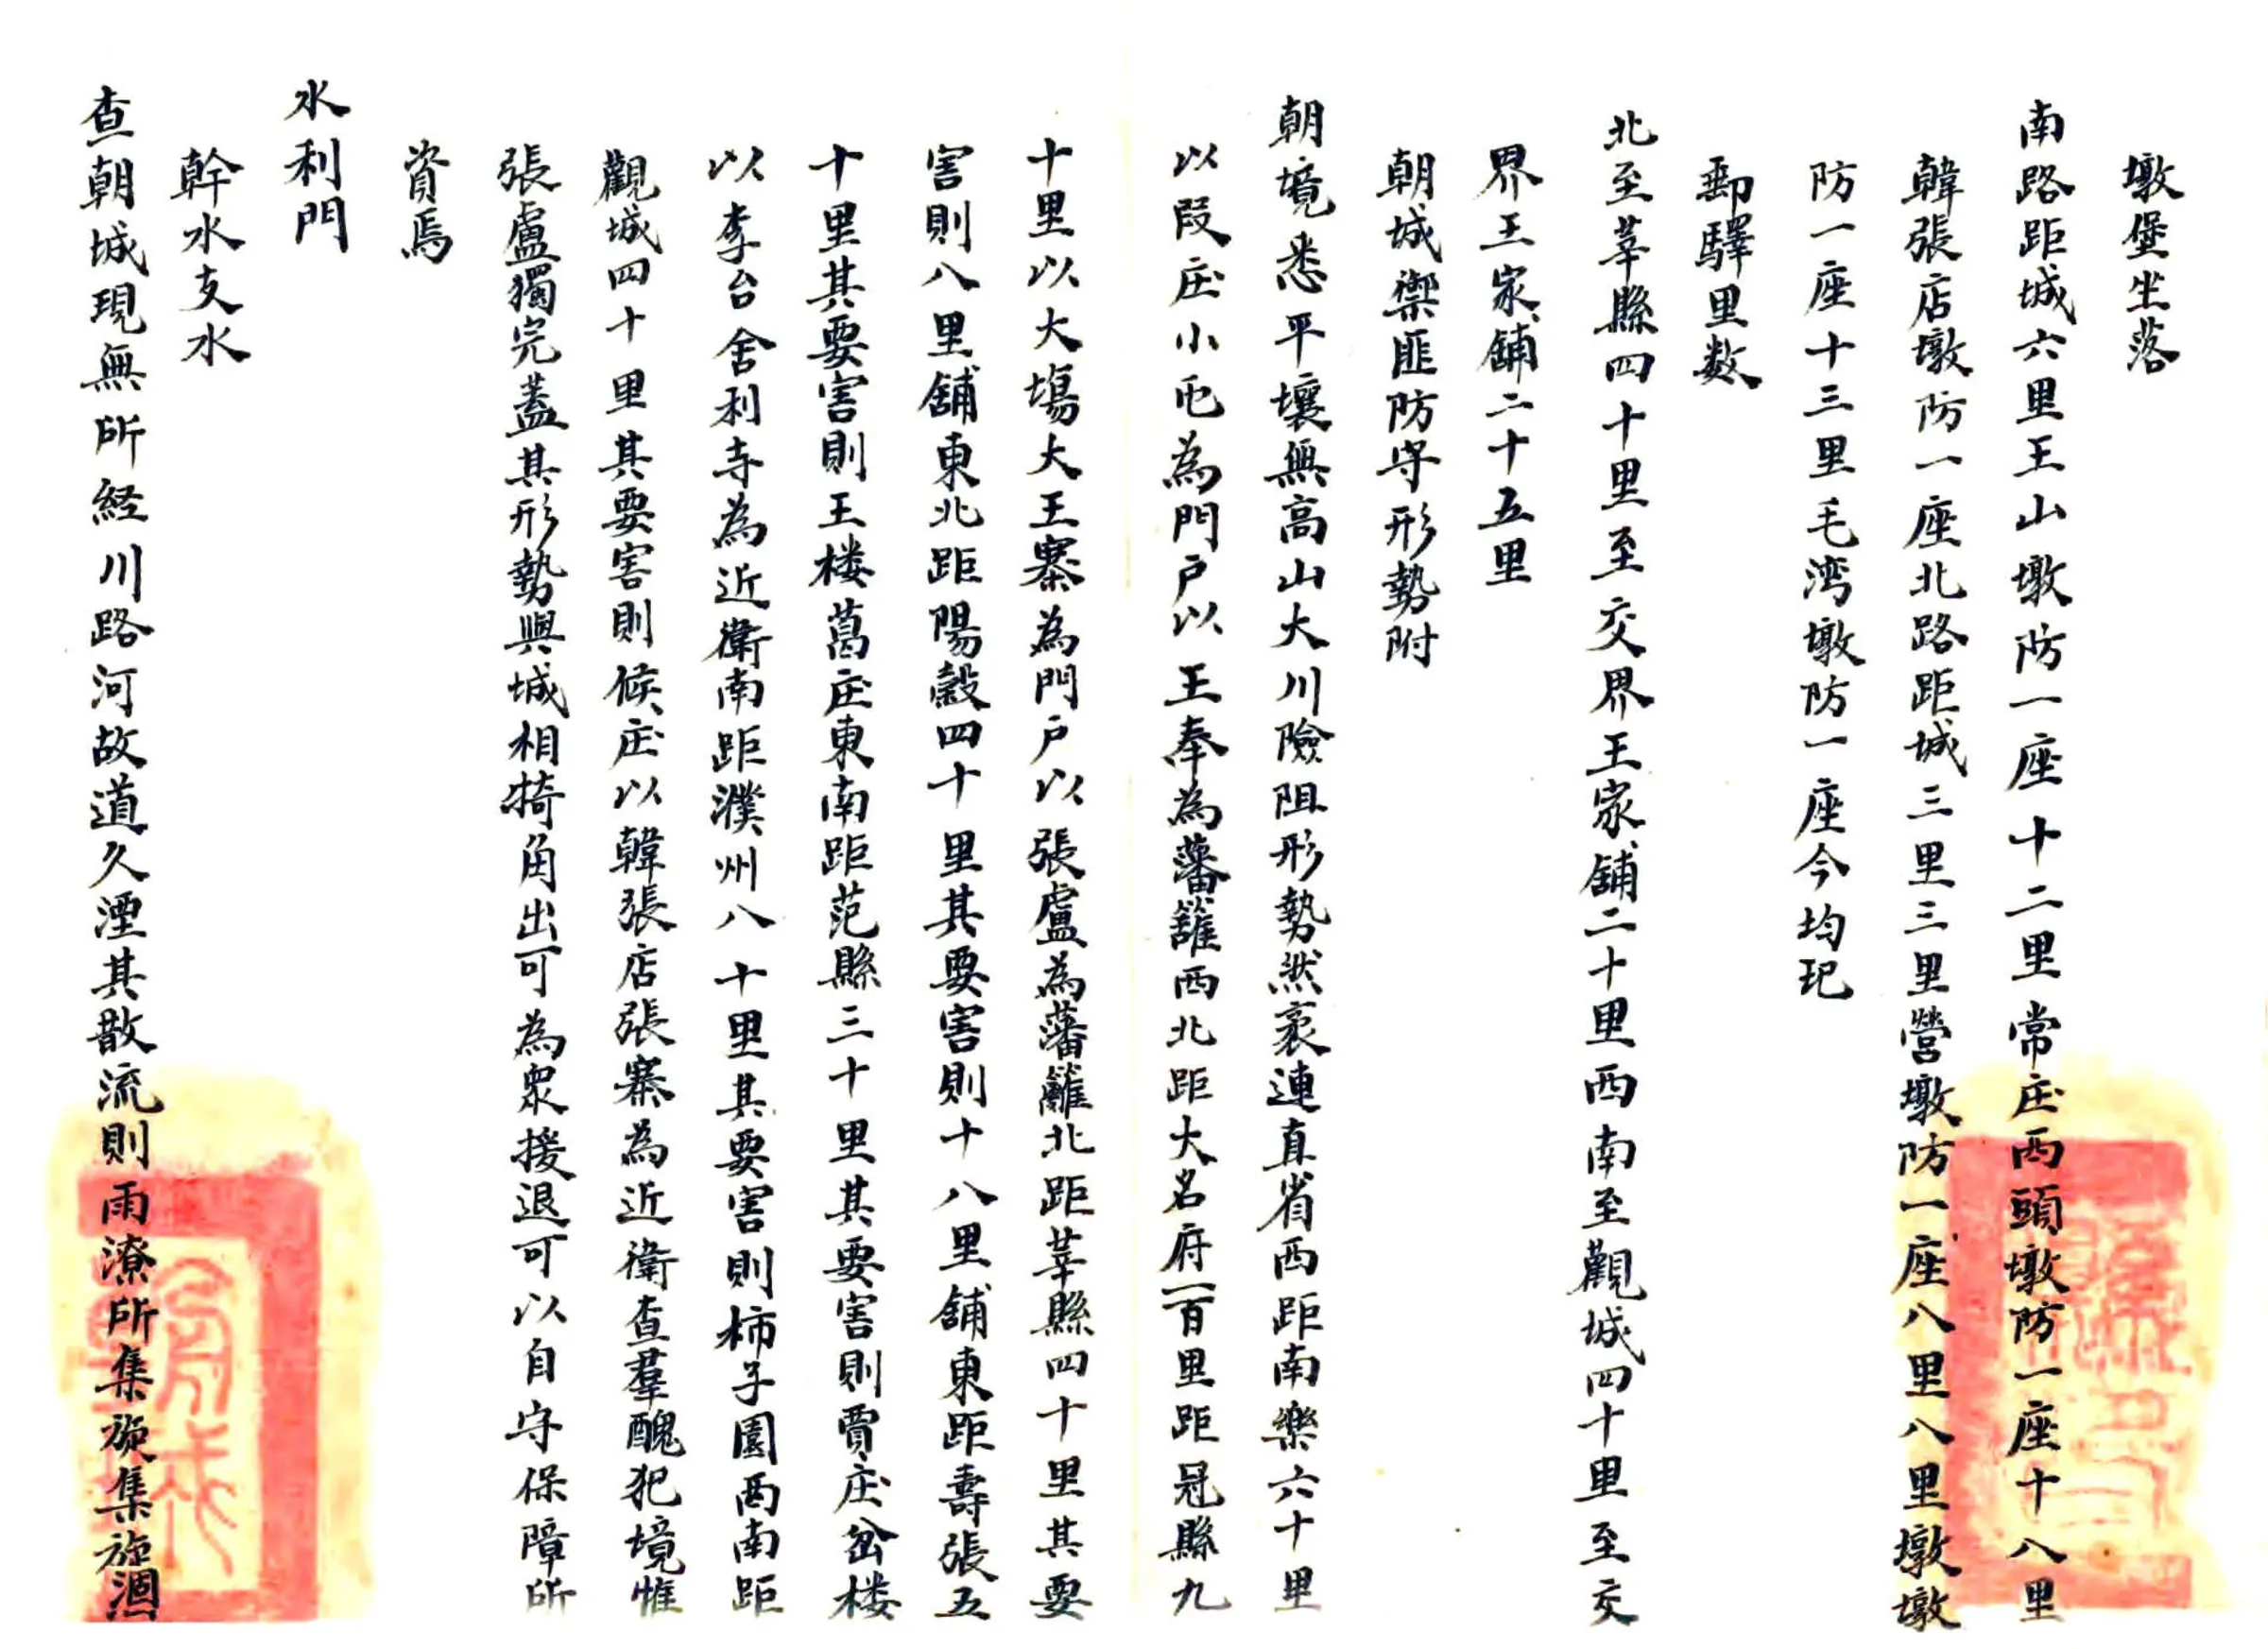 墩堡坐落
南路距城六里王山墩防一座十二里常庄西頭墩防一座十八里
韓張店墩防一座北路距城三里三里營墩防一座八里八里墩墩
防一座十三里毛湾墩防一座今均圮
郵驛里数
北至莘縣四十里至交界王家舖二十里西南至觀城四十里至交
界王家舖二十五里
朝城禦匪防守形勢附
朝境悉平壤無高山大川險阻形勢然袤連直省西距南樂六十里
以段庄小屯為門户以王奉為藩籬西北距大名府一百里距冠縣九
十里以大塲大王寨為門户以張盧為藩籬北距莘縣四十里其要
害則八里舖東北距陽穀四十里其要害則十八里舖東距壽張五
十里其要害則王楼葛庄東南距范縣三十里其要害則賈庄岔楼
以李台舍利寺為近衛南距濮州八十里其要害則柿子園西南距
觀城四十里其要害則候庄以韓張店張寨為近衛查羣醜犯境惟
張盧獨完蓋其形勢與城相掎角出可為衆援退可以自守保障所
資焉
水利門
幹水支水
查朝城現無所経川路河故道久湮其散流則雨潦所集旋集旋涸